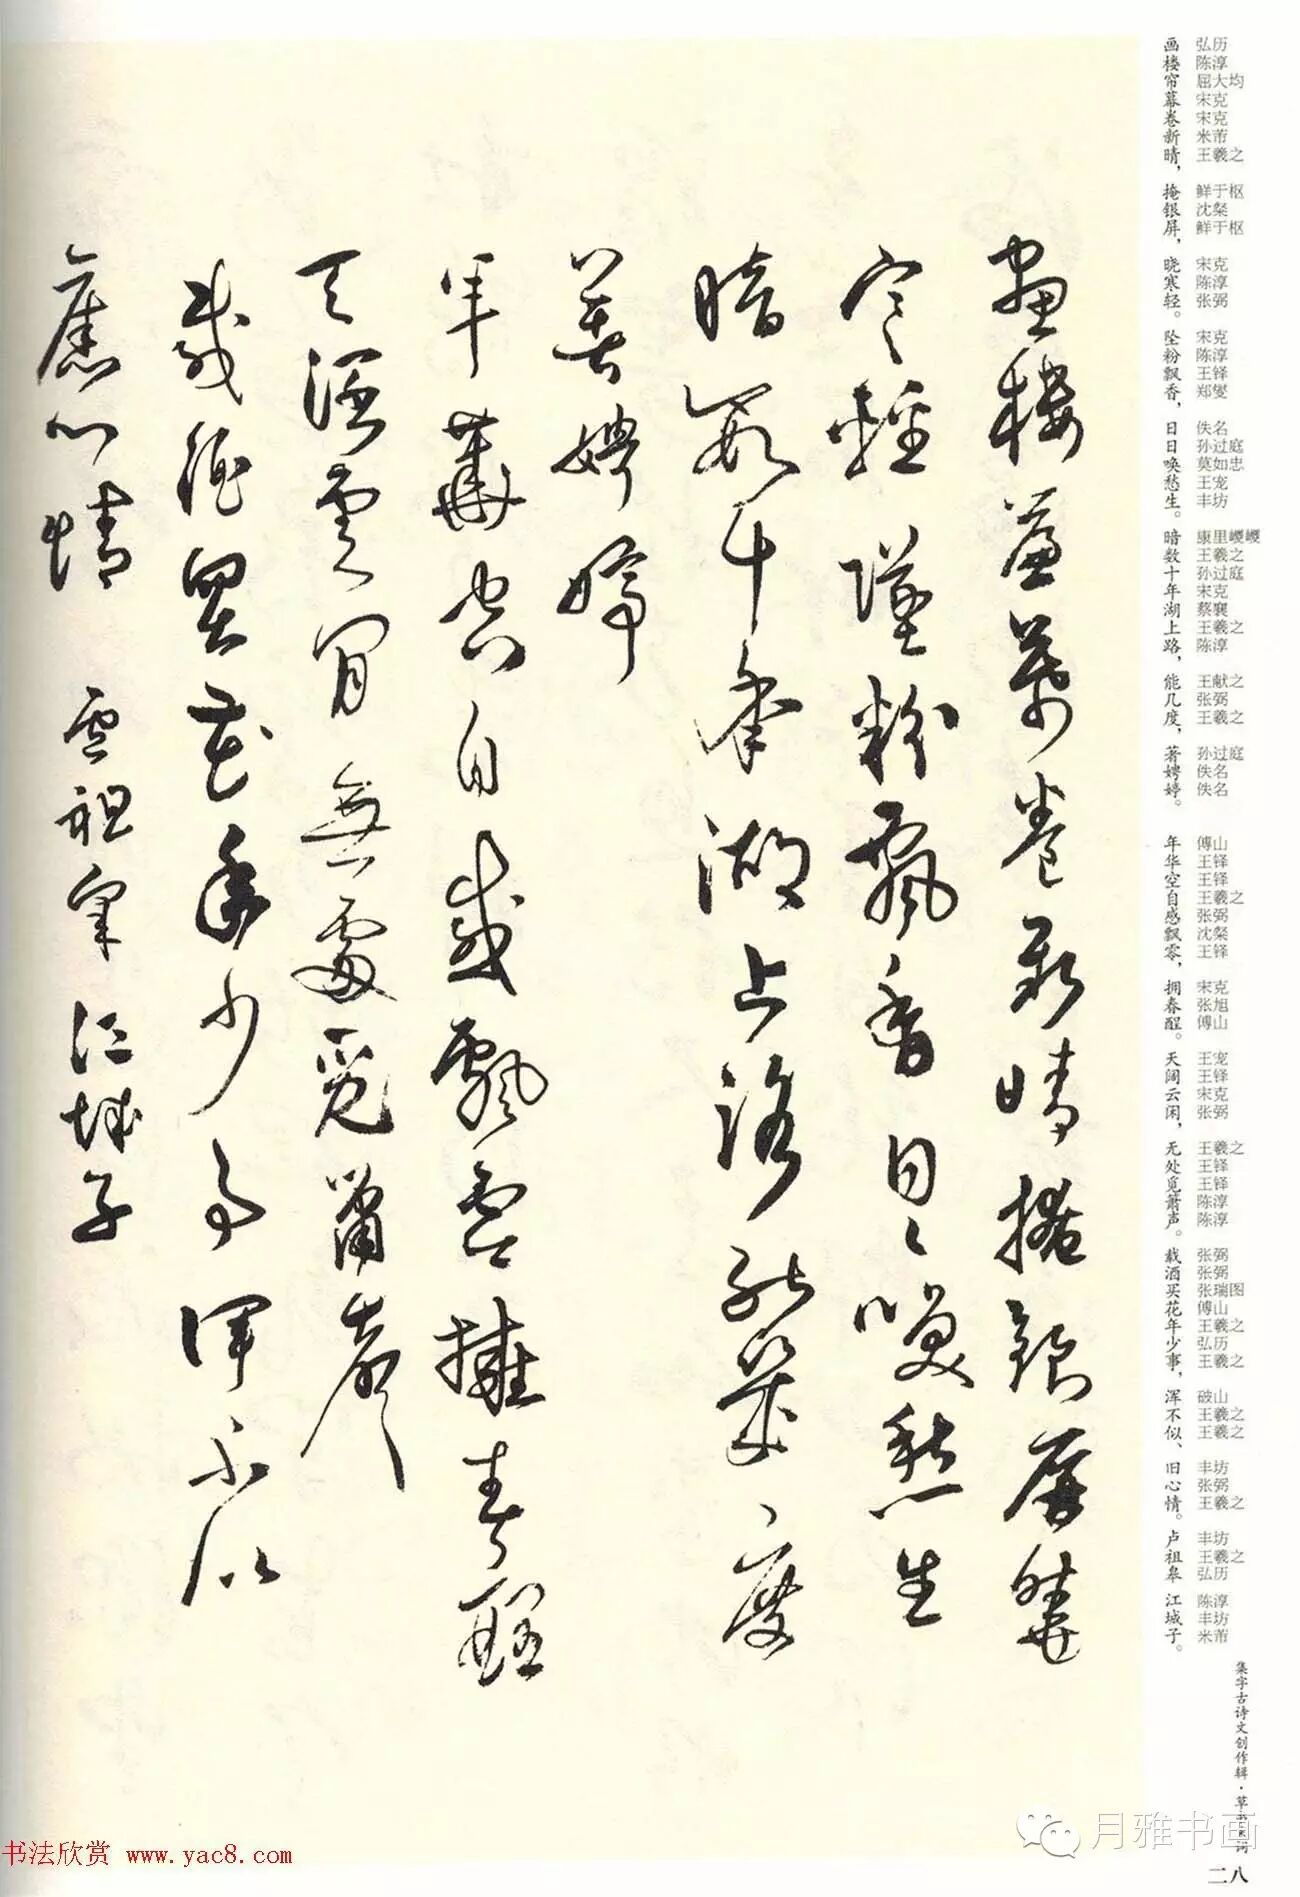 弘历 陈淳 屈大均 宋克 宋克 米芾 王羲之 鲜于枢 沈粲 鲜于枢 宋克 陈淳 张弼 宋克 陈淳 王铎 郑燮 佚名 孙过庭 莫如忠 王宠 丰坊 康里巎巎 王羲之 孙过庭 宋克 蔡襄 王羲之 陈淳 王献之 张弼 王羲之 孙过庭 佚名 佚名 傅山 王铎 王铎 王羲之 张弼 沈粲 王铎 宋克 张旭 傅山 王宠 王铎 宋克 张弼 王羲之 王铎 王铎 陈淳 陈淳 张弼 张弼 张瑞图 傅山 王羲之 弘历 王羲之 破山 王羲之 王羲之 丰坊 张弼 王羲之 丰坊 王羲之 弘历 陈淳 丰坊 米芾
画楼帘幕卷新晴，掩银屏，晓寒轻。坠粉飘香，日日唤愁生。暗数十年湖上路，能几度，著娉婷。 年华空自感飘零，拥春醒。天阔云闲，无处觅箫声。载酒买花年少事，浑不似、旧心情。卢祖皋 江城子。
集字古诗文创作辑·草书宋词
二八
畫樓簾幕卷新晴掩銀屏曉
寒輕墜粉飄香日日喚愁生
暗數十年湖上路能幾度
著娉婷
年華空自感飄零擁春醒
天闊雲閒無處覓簫聲
載酒買花年少事渾不似
舊心情 盧祖皋 江城子
月雅书画
书法欣赏 www.yac8.com